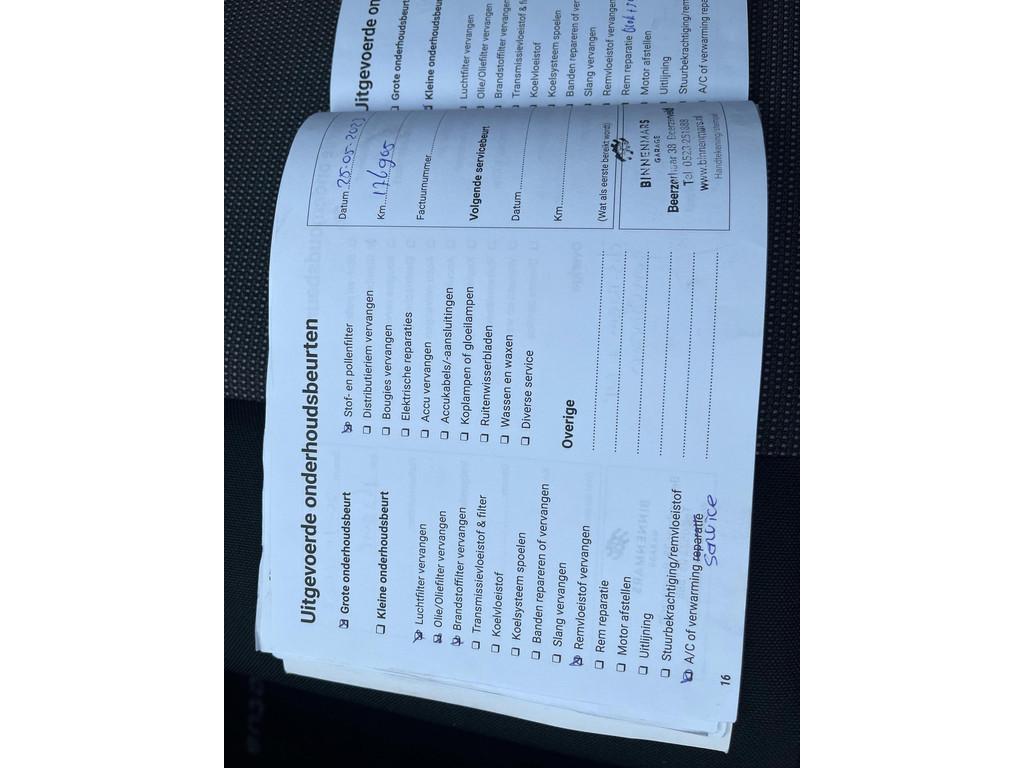 Uitgevoerde onderhoudsbeurten
Grote onderhoudsbeurt
Kleine onderhoudsbeurt
Luchtfilter vervangen
Olie/Oliefilter vervangen
Brandstoffilter vervangen
Transmissievloeistof & filter
Koelvloeistof
Koelsysteem spoelen
Banden repareren of vervangen
Slang vervangen
Remvloeistof vervangen
Rem reparatie
Motor afstellen
Uitlijning
Stuurbekrachtiging/remvloeistof
A/C of verwarming reparatie
service
16
Stof- en pollenfilter
Distributieriem vervangen
Bougies vervangen
Elektrische reparaties
Accu vervangen
Accukabels/-aansluitingen
Koplampen of gloeilampen
Ruitenwisserbladen
Wassen en waxen
Diverse service
Overige
Datum 25-05-2023
Km 176905
Factuurnummer
Volgende servicebeurt
Datum
Km
(Wat als eerste bereikt wordt)
BINNENMARS
GARAGE
Beerzerhaar 38 Beerzerveld
Tel. 0523-251888
www.binnenmars.nl
Handtekening/stempel
Uitgevoerde on
Grote onderhoudsbeurt
Kleine onderhoudsbeur
Luchtfilter vervangen
Olie/Oliefilter vervangen
Brandstoffilter vervangen
Transmissievloeistof & fi
Koelvloeistof
Koelsysteem spoelen
Banden repareren of ver
Slang vervangen
Remvloeistof vervangen
Rem reparatie
Motor afstellen
Uitlijning
Stuurbekrachtiging/rem
A/C of verwarming repa